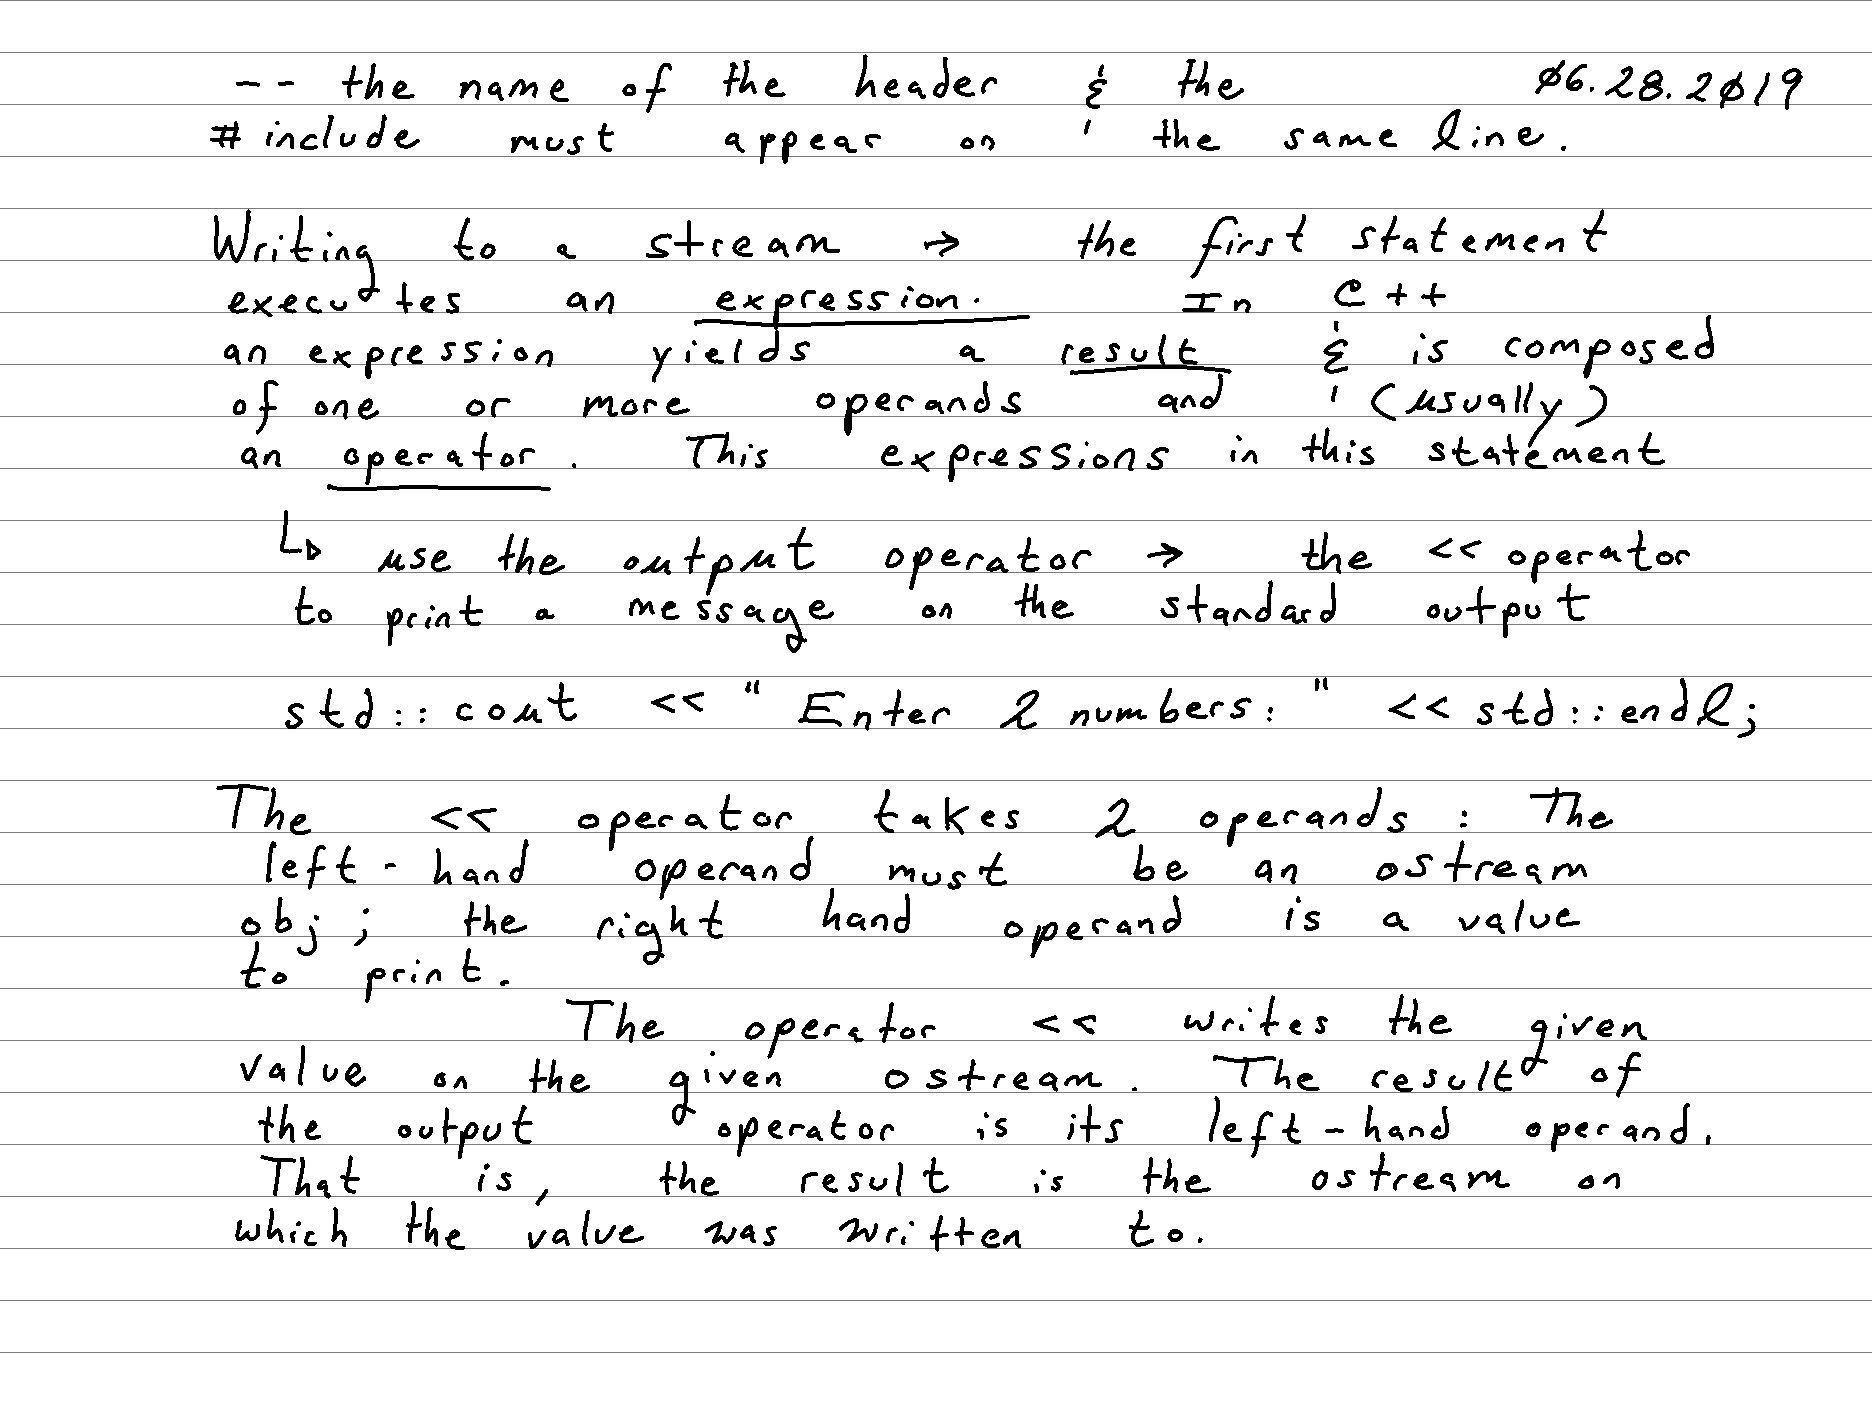 -- the name of the header & the 06.28.2019
# include must appear on the same line.
Writing to a stream → the first statement
executes an expression. In C++
an expression yields a result & is composed
of one or more operands and (usually)
an operator. This expressions in this statement
↳ use the output operator → the << operator
to print a message on the standard output
std::cout << " Enter 2 numbers: " << std::endl;
The << operator takes 2 operands : The
left-hand operand must be an ostream
obj; the right hand operand is a value
to print.
The operator << writes the given
value on the given ostream. The result of
the output operator is its left-hand operand.
That is, the result is the ostream on
which the value was written to.